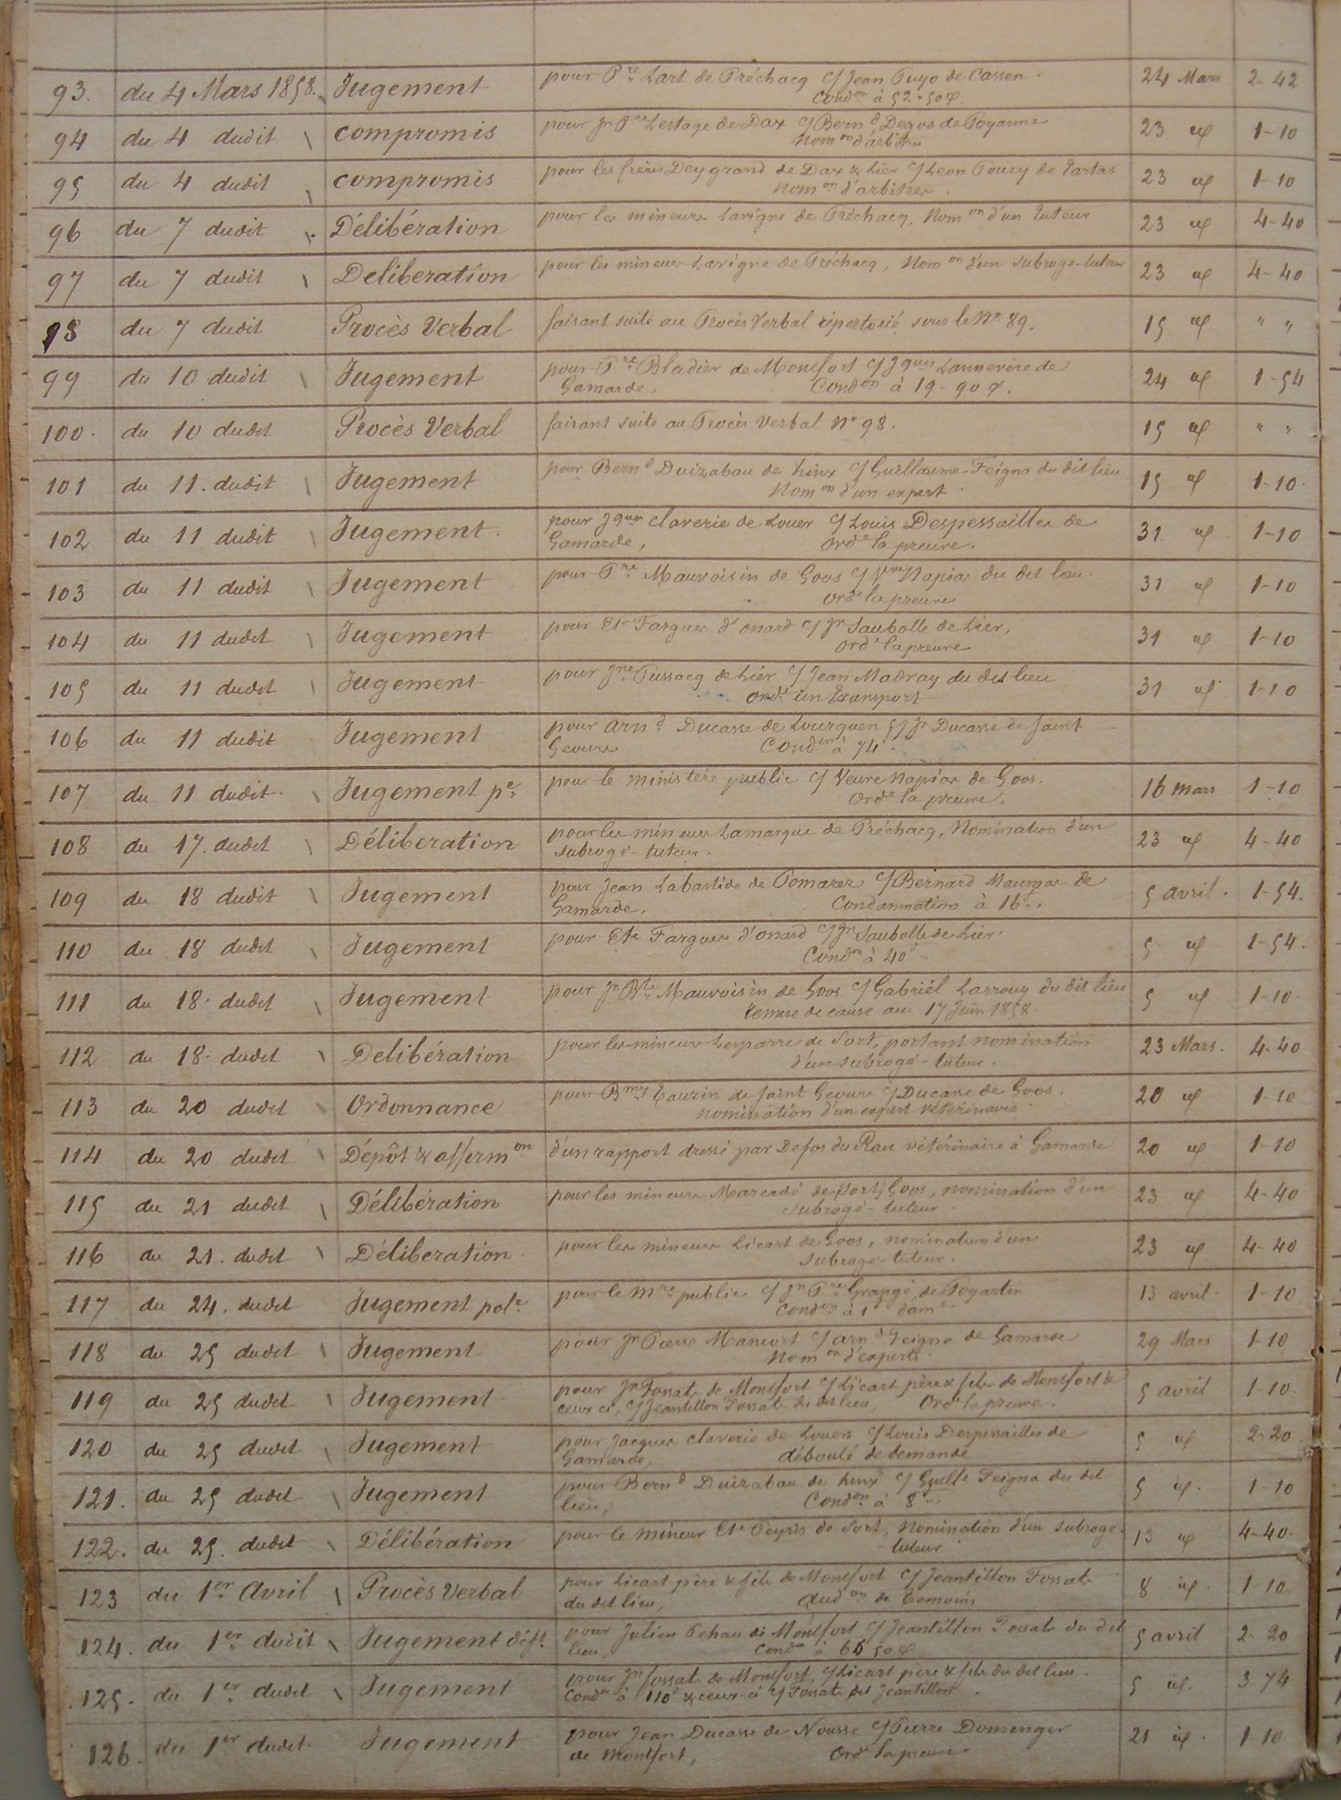 93. du 4 Mars 1858. Jugement pour Pre Lart de Préchacq c/ Jean Puyo de Cassen. 24 Mars 2-42
Condon à 52-50 c.
94 du 4 dudit compromis pour Jn Pre Lestage de Dax c/ Bernd Degos de Poyanne 23 id 1-10
Nomon d'arbitre
95 du 4 dudit compromis pour les frères Deygrand de Dax & Lier c/ Leon Poucy de Tartas 23 id 1-10
Nomon d'arbitres.
96 du 7 dudit Délibération pour les mineurs Lavigne de Préchacq, Nomon d'un tuteur 23 id 4-40
97 du 7 dudit Deliberation pour les mineurs Lavigne de Préchacq, Nomon d'un subrogé-tuteur 23 id 4-40
98 du 7 dudit Procès Verbal faisant suite au Procès Verbal répertorié sous le No 89. 15 id " "
99 du 10 dudit Jugement pour Pre Bladier de Montfort c/ Jques Lannevère de 24 id 1-54
Gamarde, Condon à 19-90 c.
100. du 10 dudit Procès Verbal faisant suite au Procès Verbal No 98. 15 id " "
101 du 11. dudit Jugement pour Bernd Duizabau de hinx c/ Guillaume Feigna du dit lieu 15 id 1-10.
Nomon d'un expert.
102 du 11 dudit Jugement. pour Jques Claverie de Louer c/ Louis Despessailles de 31 id 1-10
Gamarde, Ordе la preuve.
103 du 11 dudit Jugement pour Pre Mauvoisin de Goos c/ Vve Napias du dit lieu. 31 id 1-10
Orde la preuve
104 du 11 dudit Jugement pour Ete Fargues d'onard c/ Jn Saubolle de Lier, 31 id 1-10
Orde la preuve
105 du 11 dudit Jugement pour Jne Pussacq de Lier c/ Jean Madray du dit lieu 31 id 1-10
Orde un transport
106 du 11 dudit Jugement pour Arnd Ducasse de Lourquen c/ Jn Ducasse de Saint
Geours Condon à 74
107 du 11 dudit. Jugement pe pour le ministère public c/ Veuve Napias de Goos. 16 mars 1-10
Orde la preuve.
108 du 17. dudit Déliberation pour les mineurs Lamarque de Préchacq, Nomination d'un 23 id 4-40
subrogé-tuteur.
109 du 18 dudit Jugement pour Jean Labastide de Pomarez c/ Bernard Maumas de 5 avril. 1-54.
Gamarde, Condamnation à 16f.
110 du 18 dudit Jugement pour Ete Fargues d'onard c/ Jn Saubolle de Lier. 5 id 1-54.
Condon à 40f
111 du 18. dudit Jugement pour Jn Bte Mauvoisin de Goos c/ Gabriël Larrouy du dit lieu 5 id 1-10.
remise de cause au 17 Juin 1858.
112 du 18. dudit Delibération pour les mineurs Lesparre de Sort, portant nomination 23 Mars. 4-40
d'un subrogé-tuteur.
113 du 20 dudit Ordonnance pour Bmy Tauzin de Saint Geours c/ Ducasse de Goos. 20 id 1-10
nomination d'un expert vétérinaire
114 du 20 dudit Dépôt & affermon d'un rapport dressé par Defos du Rau vétérinaire à Gamarde 20 id 1-10
115 du 21 dudit Délibération pour les mineurs Marcadé de Sort, Goos, nomination d'un 23 id 4-40
subrogé-tuteur.
116 du 21. dudit Déliberation. pour les mineurs Licart de Goos, nomination d'un 23 id 4-40
subrogé-tuteur.
117 du 24. dudit Jugement pole pour le Mre public c/ Jn Pre Grangé de Poyartin 13 avril. 1-10
Condon à 1f dame
118 du 25 dudit Jugement pour Jn Pierre Mancort c/ Arnd Feigna de Gamarde 29 Mars 1-10
Nomon d'experts.
119 du 25 dudit Jugement pour Jn Fossats de Montfort c/ Licart père & fils de Montfort & 5 avril 1-10.
ceux ci, c/ Jeantillon Fossats du dit lieu, Orde la preuve.
120 du 25 dudit Jugement pour Jacques Claverie de Louers c/ Louis Despessailles de 5 id 2-20
Gamarde, débouté de demande
121. du 25 dudit Jugement pour Bernd Duizabau de hinx c/ Guille Feigna du dit 5 id. 1-10
lieu, Condon à 8f
122. du 25. dudit Délibération pour le mineur Ete Peyris de Sort, Nomination d'un subrogé- 13 id 4-40.
tuteur
123 du 1er Avril Procès Verbal pour Licart père & fils de Montfort c/ Jeantillon Fossats 8 id. 1-10
du dit lieu, Audon de témoins
124. du 1er dudit Jugement déft pour Julien Pehau de Montfort c/ Jeantillon Fossats du dit 5 avril 2-20
lieu, Condon à 66 50 c
125. du 1er dudit Jugement pour Jn fossats de Montfort, c/ Licart père & fils du dit lieu. 5 id. 3 74
Condon à 110f & ceux-ci c/ Fossats dit Jeantillon.
126. du 1er dudit Jugement pour Jean Ducasse de Nousse c/ Pierre Domenger 21 id. 1-10
de Montfort, Orde la preuve